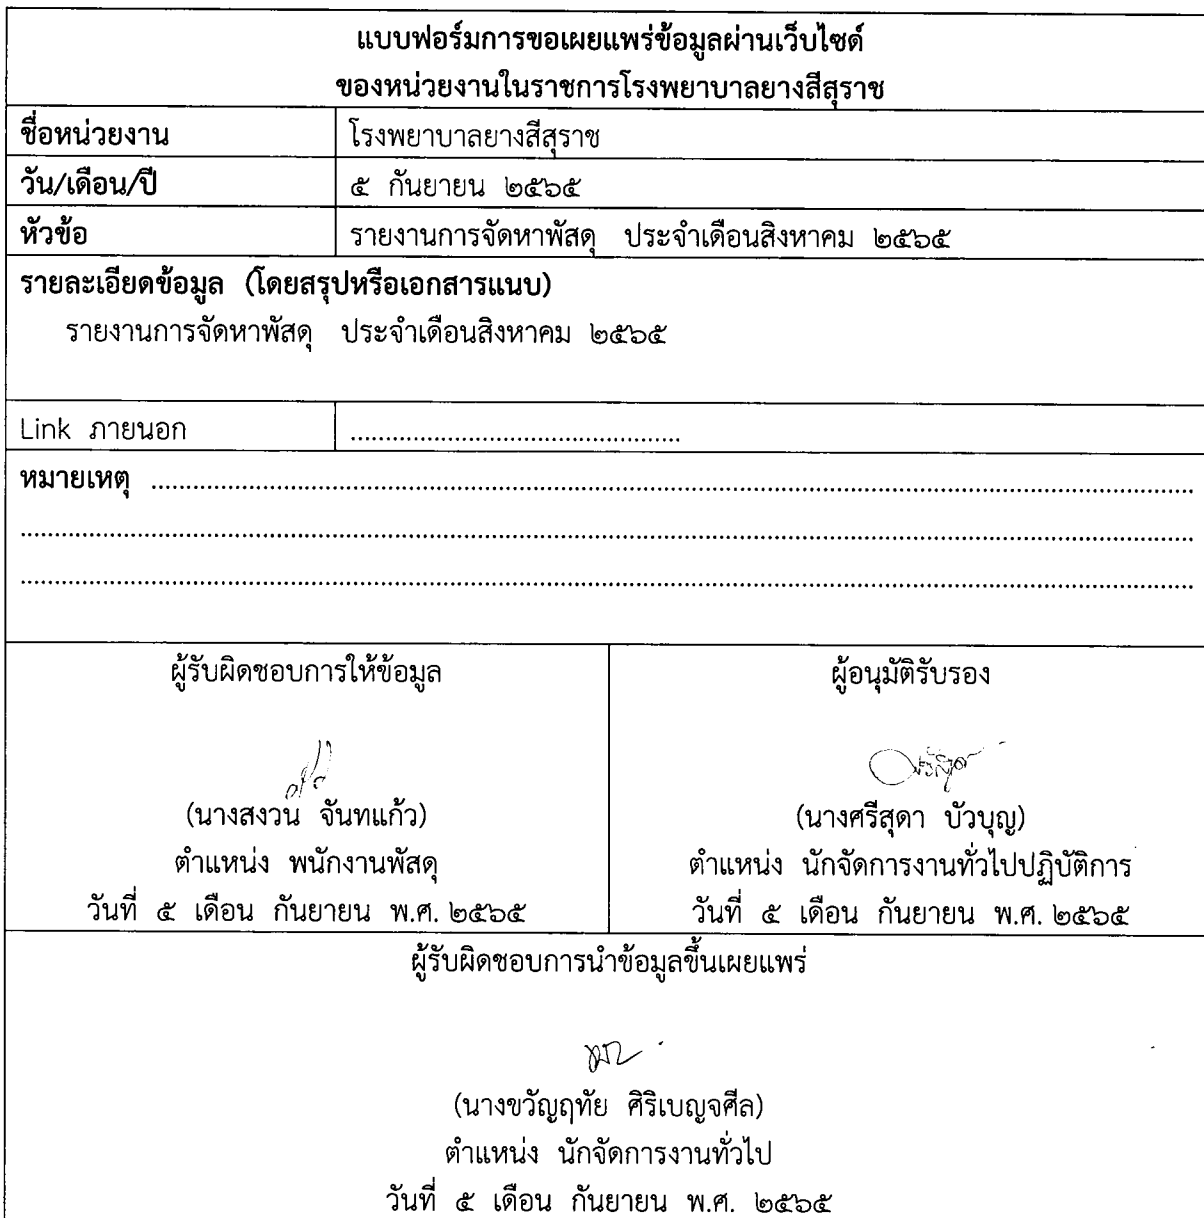 แบบฟอร์มการขอเผยแพร่ข้อมูลผ่านเว็บไซด์
ของหน่วยงานในราชการโรงพยาบาลยางสีสุราช
ชื่อหน่วยงาน โรงพยาบาลยางสีสุราช
วัน/เดือน/ปี ๕ กันยายน ๒๕๖๕
หัวข้อ รายงานการจัดหาพัสดุ ประจำเดือนสิงหาคม ๒๕๖๕
รายละเอียดข้อมูล (โดยสรุปหรือเอกสารแนบ)
รายงานการจัดหาพัสดุ ประจำเดือนสิงหาคม ๒๕๖๕
Link ภายนอก ...............................................
หมายเหตุ ...............................................
...............................................
...............................................
ผู้รับผิดชอบการให้ข้อมูล
(นางสงวน จันทแก้ว)
ตำแหน่ง พนักงานพัสดุ
วันที่ ๕ เดือน กันยายน พ.ศ. ๒๕๖๕
ผู้อนุมัติรับรอง
(นางศรีสุดา บัวบุญ)
ตำแหน่ง นักจัดการงานทั่วไปปฏิบัติการ
วันที่ ๕ เดือน กันยายน พ.ศ. ๒๕๖๕
ผู้รับผิดชอบการนำข้อมูลขึ้นเผยแพร่
(นางขวัญฤทัย ศิริเบญจศีล)
ตำแหน่ง นักจัดการงานทั่วไป
วันที่ ๕ เดือน กันยายน พ.ศ. ๒๕๖๕